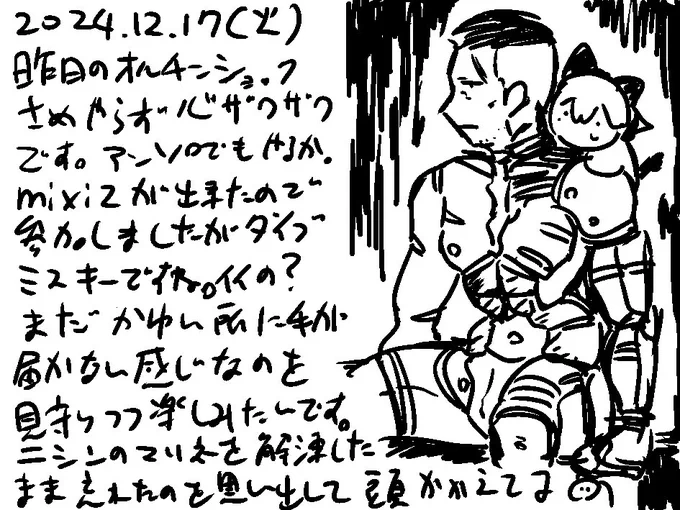 2024.12.17(火)
昨日のオルチンショック
さめやらず心ザワザワ
です。アンソロでもやるか。
mixi2が出来たので
参加しましたがタイプ
ミスキーで伝。イイの?
まだかゆい所に手が
届かない感じなのを
見守りつつ楽しみたいです。
ニシンのマリネを解凍した
まま忘れたのを思い出して頭かかえてる